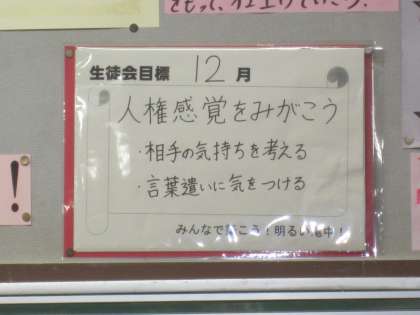 もって、仕上げていこう。
生徒会目標 12月
人権感覚をみがこう
・相手の気持ちを考える
・言葉遣いに気をつける
みんなで
こう！明るい
中！
!